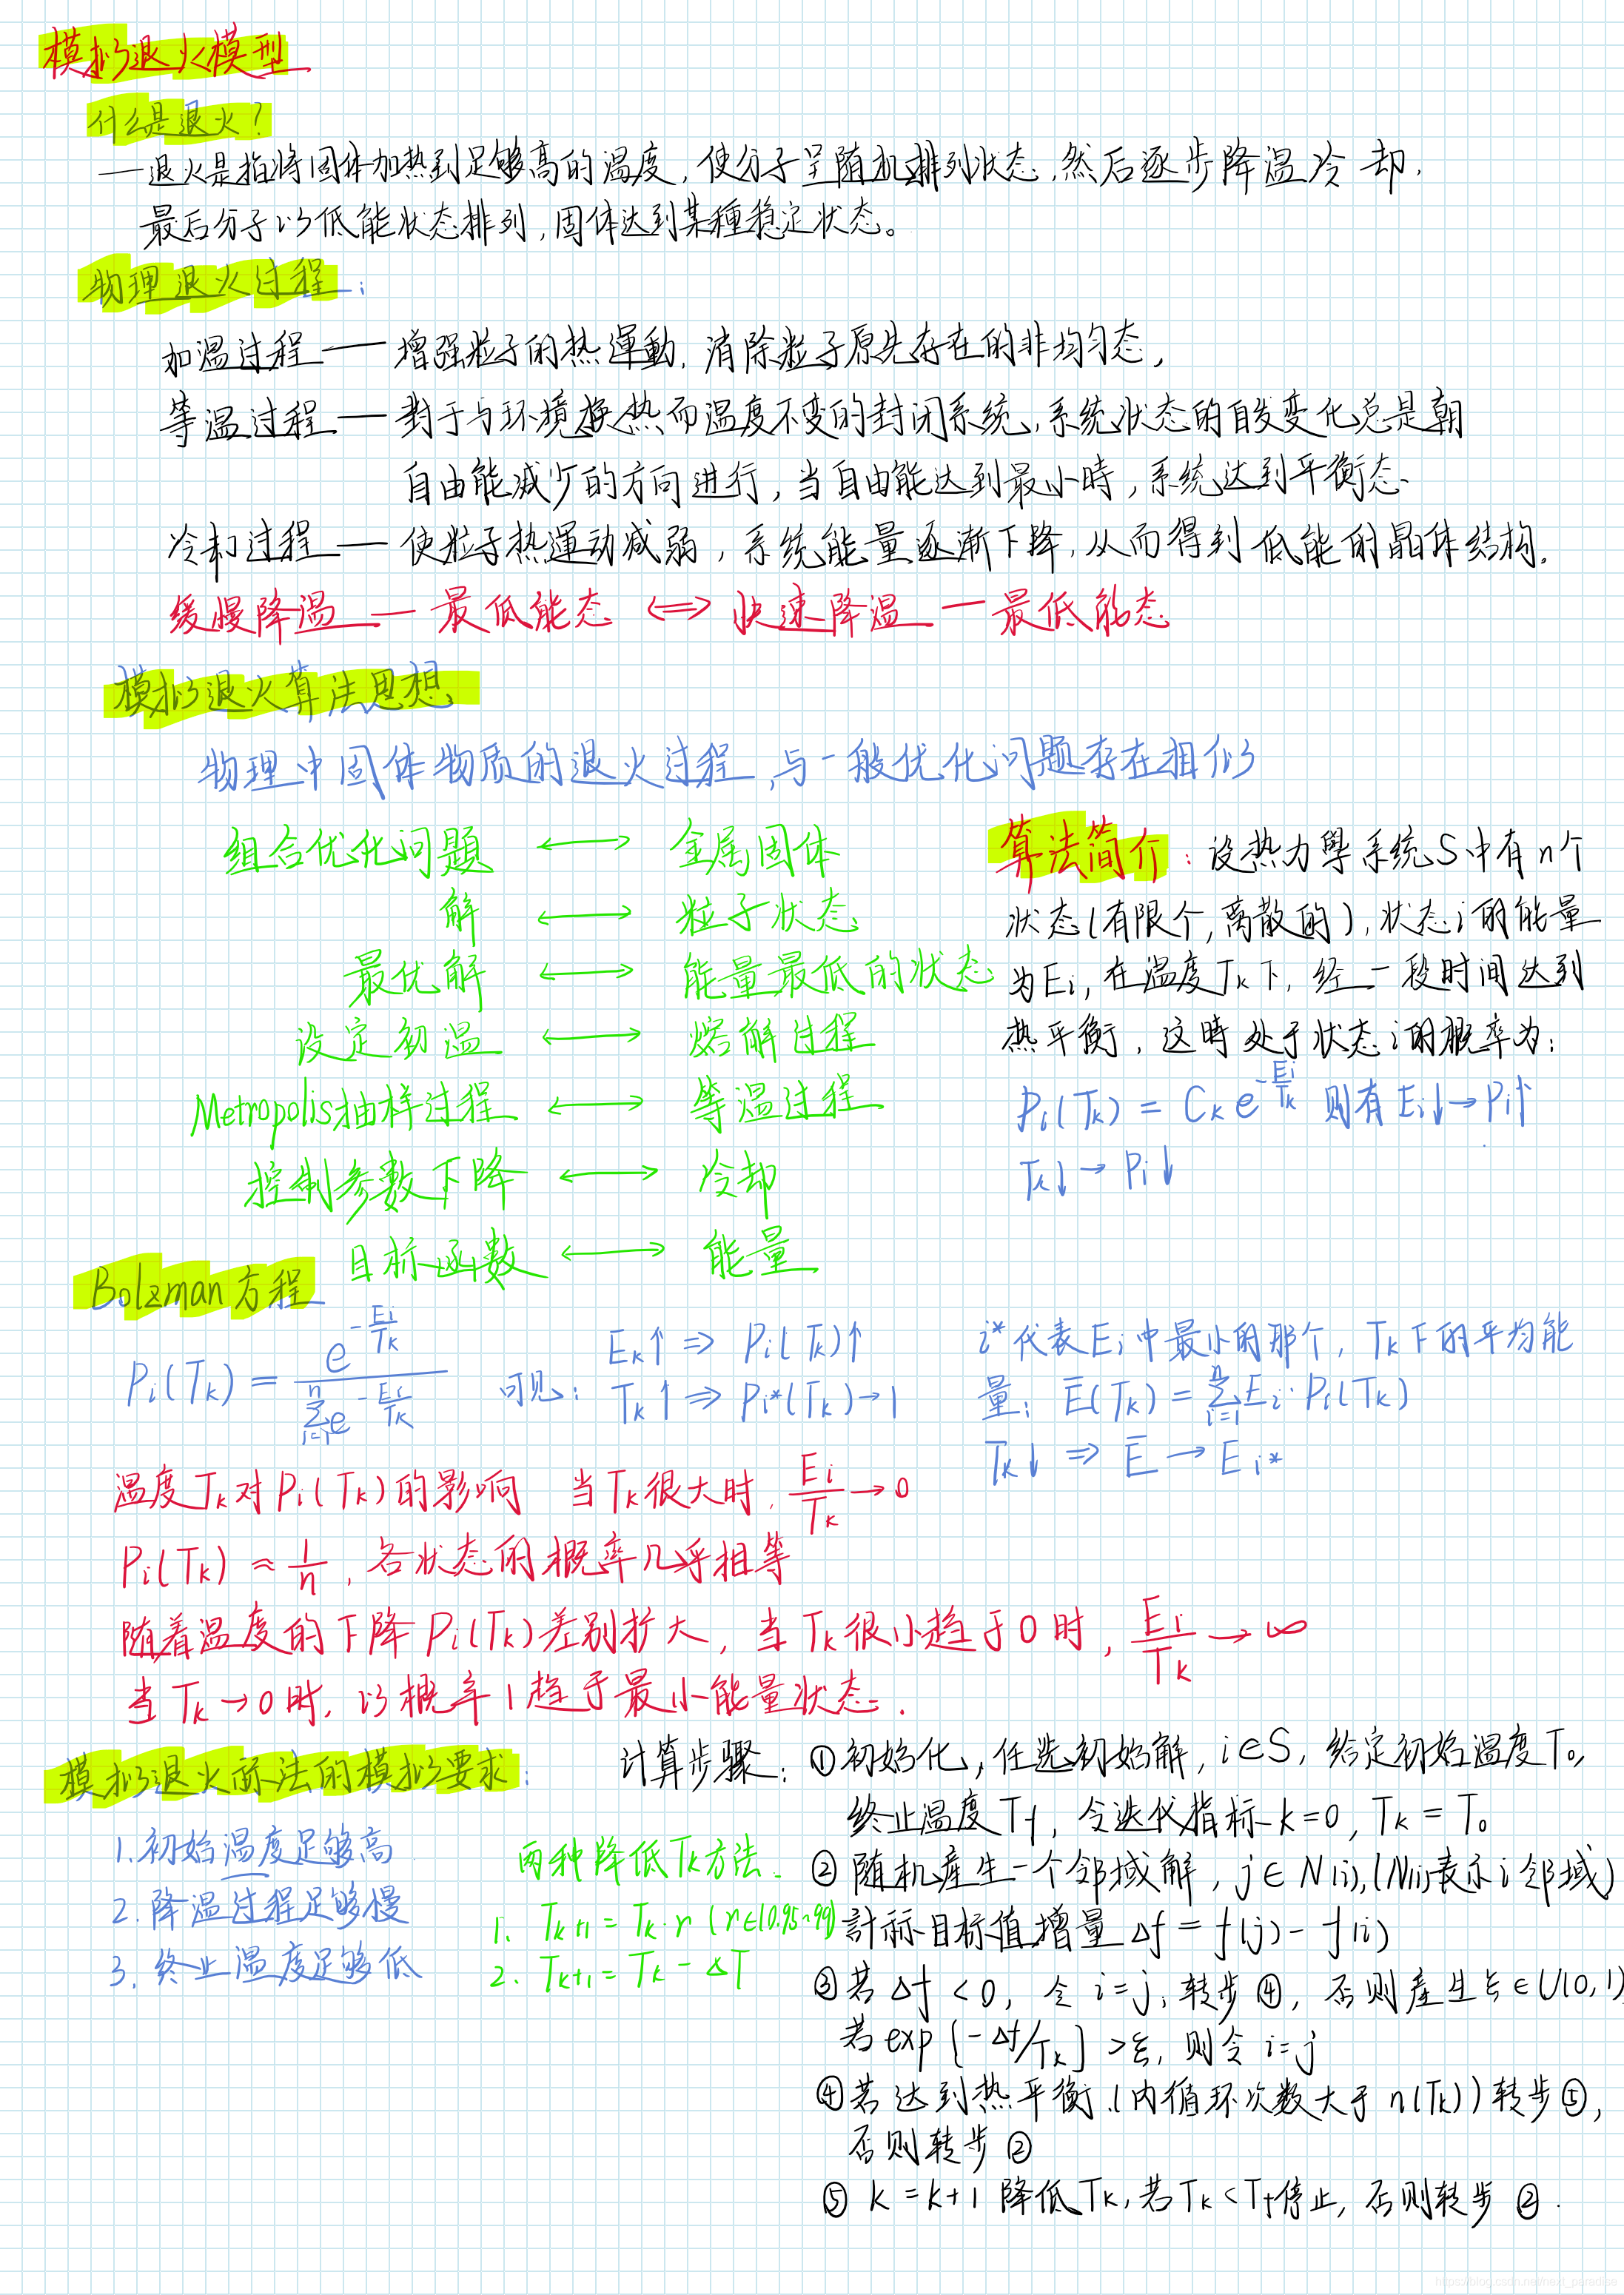 模拟退火模型
什么是退火?
—退火是指将固体加热到足够高的温度,使分子呈随机排列状态,然后逐步降温冷却,
最后分子以低能状态排列,固体达到某種稳定状态。
物理退火过程:
加温过程 — 增强粒子的热運動,消除粒子原先存在的非均匀态,
等温过程 — 對于与环境换热而温度不变的封闭系统,系统状态的自发变化总是朝
自由能减少的方向进行,当自由能达到最小時,系统达到平衡态.
冷却过程 — 使粒子热運动减弱,系统能量逐渐下降,从而得到低能的晶体结构.
缓慢降温 — 最低能态 <=> 快速降温 — 最低能态
模拟退火算法思想
物理中固体物质的退火过程,与一般优化问题存在相似
组合优化问题 ←→ 金属固体
解 ←→ 粒子状态
最优解 ←→ 能量最低的状态
设定初温 ←→ 熔解过程
Metropolis抽样过程 ←→ 等温过程
控制参数下降 ←→ 冷却
目标函数 ←→ 能量
算法简介:设热力學系统S中有n个
状态(有限个,离散的),状态i的能量
为Ei,在温度Tk下,经一段时间达到
热平衡,这時处于状态i的概率为:
Pi(Tk) = Ck e^(-Ei/Tk) 则有 Ei↓→Pi↑
Tk↓→Pi↓
Bolzman方程
Pi(Tk) = e^(-Ei/Tk) / Σ(i=1,n) e^(-Ei/Tk) 可见: Ek↑ ⇒ Pi(Tk)↑
Tk↑ ⇒ Pi*(Tk)→1
i*代表Ei中最小的那个,Tk下的平均能
量: Ē(Tk) = Σ(i=1,n) Ei·Pi(Tk)
Tk↓ ⇒ Ē → Ei*
温度Tk对Pi(Tk)的影响 当Tk很大时,Ei/Tk→0
Pi(Tk)≈1/n,各状态的概率几乎相等
随着温度的下降Pi(Tk)差别扩大,当Tk很小趋于0时,Ei/Tk→∞
当Tk→0时,以概率1趋于最小能量状态.
模拟退火算法的模拟要求:
1.初始温度足够高
2.降温过程足够慢
3.终止温度足够低
两种降低Tk方法.
1. Tk+1 = Tk·r (r∈(0.95~99)
2. Tk+1 = Tk - ΔT
计算步骤: ①初始化,任选初始解,i∈S,给定初始温度T0,
终止温度Tf,令迭代指标k=0,Tk=T0
②随机產生一个邻域解,j∈N(i),(N(i)表示i邻域)
計称目标值增量Δf=f(j)-f(i)
③若Δf<0,令i=j,转步④,否则產生ξ∈U(0,1)
若exp[-Δf/Tk]>ξ,则令i=j
④若达到热平衡(内循环次数大于n(Tk))转步⑤,
否则转步②
⑤k=k+1降低Tk,若Tk<Tf停止,否则转步②.